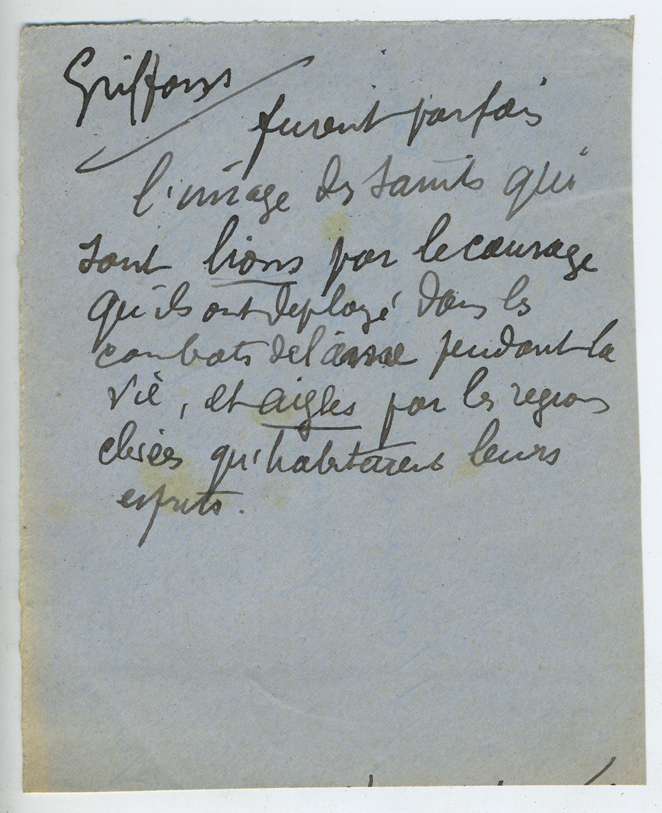 Griffons
furent parfois
l'image des saints qui
sont lions par le courage
qu'ils ont deployé dans les
combats de l'âme pendant la
vie, et aigles par les regions
elevées qu'habitèrent leurs
esprits.